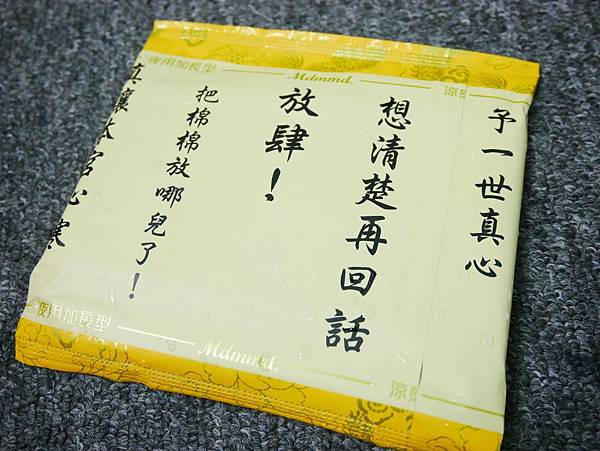 夜用加長型
Mdmmd.
涼感
予一世真心
想清楚再回話
放肆！
把棉棉放哪兒了！
真讓本宮心寒
夜用加長型
Mdmmd.
涼感